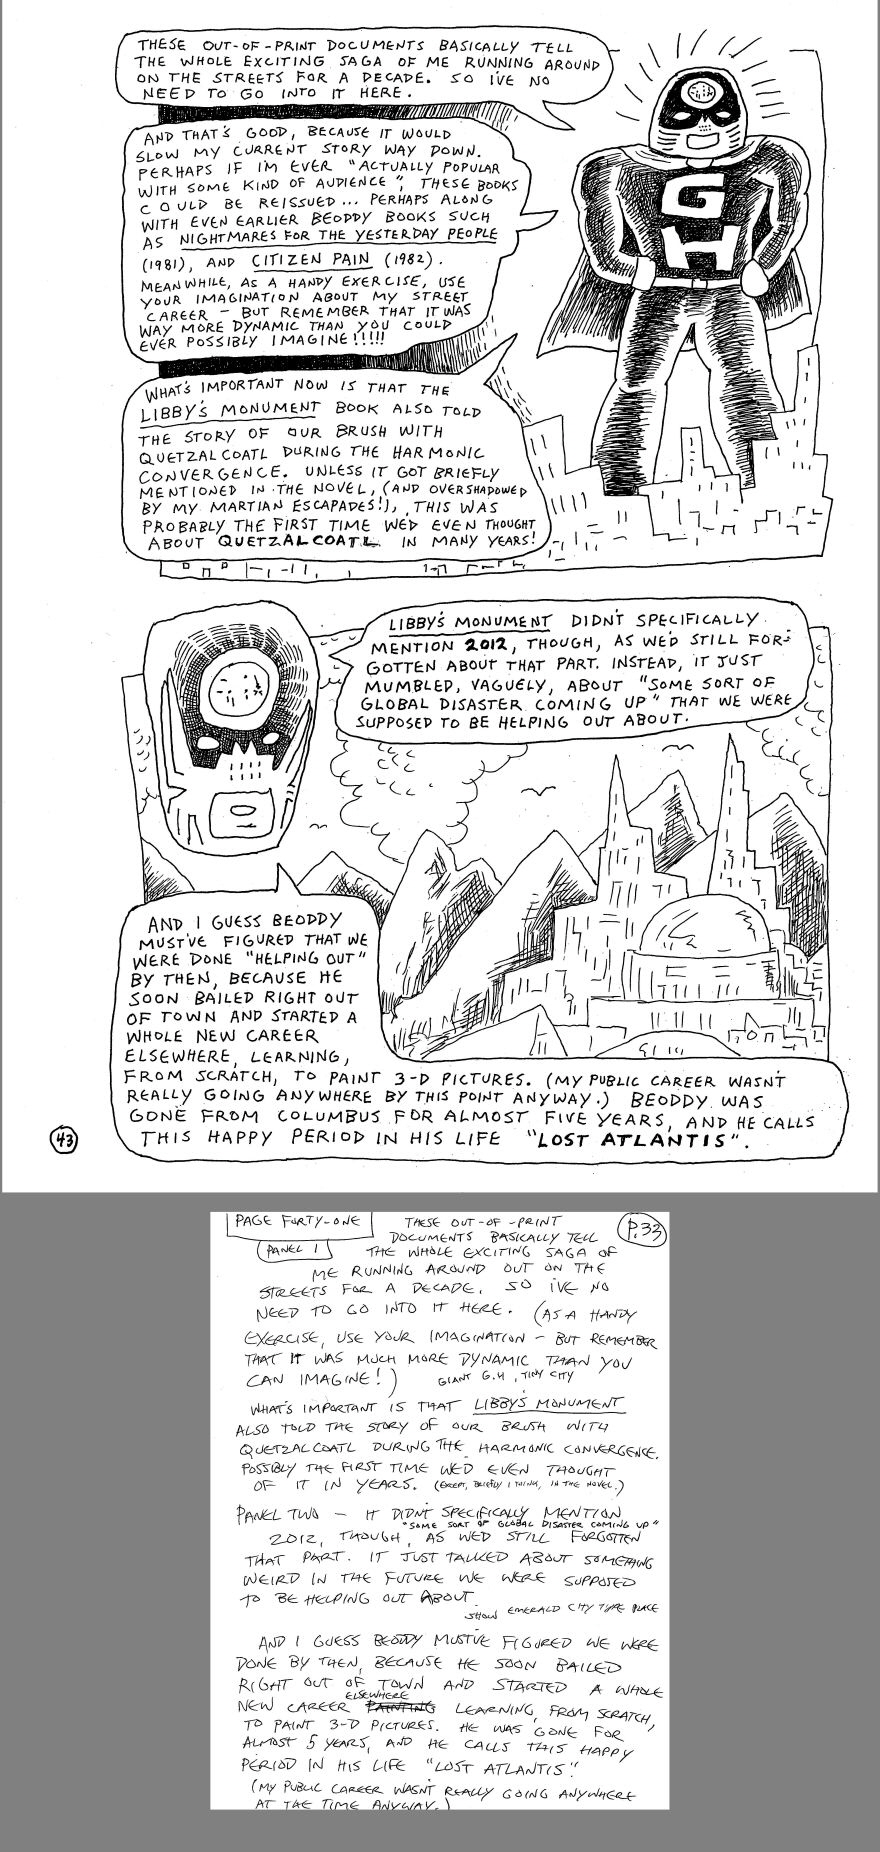 THESE OUT-OF-PRINT DOCUMENTS BASICALLY TELL
THE WHOLE EXCITING SAGA OF ME RUNNING AROUND
ON THE STREETS FOR A DECADE. SO I'VE NO
NEED TO GO INTO IT HERE.
AND THAT'S GOOD, BECAUSE IT WOULD
SLOW MY CURRENT STORY WAY DOWN.
PERHAPS IF I'M EVER "ACTUALLY POPULAR
WITH SOME KIND OF AUDIENCE", THESE BOOKS
COULD BE REISSUED... PERHAPS ALONG
WITH EVEN EARLIER BEODDY BOOKS SUCH
AS NIGHTMARES FOR THE YESTERDAY PEOPLE
(1981), AND CITIZEN PAIN (1982).
MEANWHILE, AS A HANDY EXERCISE, USE
YOUR IMAGINATION ABOUT MY STREET
CAREER - BUT REMEMBER THAT IT WAS
WAY MORE DYNAMIC THAN YOU COULD
EVER POSSIBLY IMAGINE!!!!!
G
H
WHAT'S IMPORTANT NOW IS THAT THE
LIBBY'S MONUMENT BOOK ALSO TOLD
THE STORY OF OUR BRUSH WITH
QUETZALCOATL DURING THE HARMONIC
CONVERGENCE. UNLESS IT GOT BRIEFLY
MENTIONED IN THE NOVEL, (AND OVERSHADOWED
BY MY MARTIAN ESCAPADES!), THIS WAS
PROBABLY THE FIRST TIME WE'D EVEN THOUGHT
ABOUT QUETZALCOATL IN MANY YEARS!
LIBBY'S MONUMENT DIDN'T SPECIFICALLY
MENTION 2012, THOUGH, AS WE'D STILL FOR-
GOTTEN ABOUT THAT PART. INSTEAD, IT JUST
MUMBLED, VAGUELY, ABOUT "SOME SORT OF
GLOBAL DISASTER COMING UP" THAT WE WERE
SUPPOSED TO BE HELPING OUT ABOUT.
AND I GUESS BEODDY
MUST'VE FIGURED THAT WE
WERE DONE "HELPING OUT"
BY THEN, BECAUSE HE
SOON BAILED RIGHT OUT
OF TOWN AND STARTED A
WHOLE NEW CAREER
ELSEWHERE, LEARNING,
FROM SCRATCH, TO PAINT 3-D PICTURES. (MY PUBLIC CAREER WASN'T
REALLY GOING ANYWHERE BY THIS POINT ANYWAY.) BEODDY WAS
GONE FROM COLUMBUS FOR ALMOST FIVE YEARS, AND HE CALLS
THIS HAPPY PERIOD IN HIS LIFE "LOST ATLANTIS".
43
PAGE FORTY-ONE
P.33
PANEL 1
THESE OUT-OF-PRINT
DOCUMENTS BASICALLY TELL
THE WHOLE EXCITING SAGA OF
ME RUNNING AROUND OUT ON THE
STREETS FOR A DECADE. SO I'VE NO
NEED TO GO INTO IT HERE. (AS A HANDY
EXERCISE, USE YOUR IMAGINATION - BUT REMEMBER
THAT IT WAS MUCH MORE DYNAMIC THAN YOU
CAN IMAGINE!)
GIANT G.H, TINY CITY
WHAT'S IMPORTANT IS THAT LIBBY'S MONUMENT
ALSO TOLD THE STORY OF OUR BRUSH WITH
QUETZALCOATL DURING THE HARMONIC CONVERGENCE.
POSSIBLY THE FIRST TIME WE'D EVEN THOUGHT
OF IT IN YEARS. (EXCEPT, BRIEFLY I THINK, IN THE NOVEL.)
PANEL TWO - IT DIDN'T SPECIFICALLY MENTION
"SOME SORT OF GLOBAL DISASTER COMING UP"
2012, THOUGH, AS WE'D STILL FORGOTTEN
THAT PART. IT JUST TALKED ABOUT SOMETHING
WEIRD IN THE FUTURE WE WERE SUPPOSED
TO BE HELPING OUT ABOUT.
SHOW EMERALD CITY TYPE PLACE
AND I GUESS BEODDY MUST'VE FIGURED WE WERE
DONE BY THEN, BECAUSE HE SOON BAILED
RIGHT OUT OF TOWN AND STARTED A WHOLE
ELSEWHERE
NEW CAREER PAINTING LEARNING, FROM SCRATCH,
TO PAINT 3-D PICTURES. HE WAS GONE FOR
ALMOST 5 YEARS, AND HE CALLS THIS HAPPY
PERIOD IN HIS LIFE "LOST ATLANTIS"
(MY PUBLIC CAREER WASN'T REALLY GOING ANYWHERE
AT THE TIME ANYWAY.)